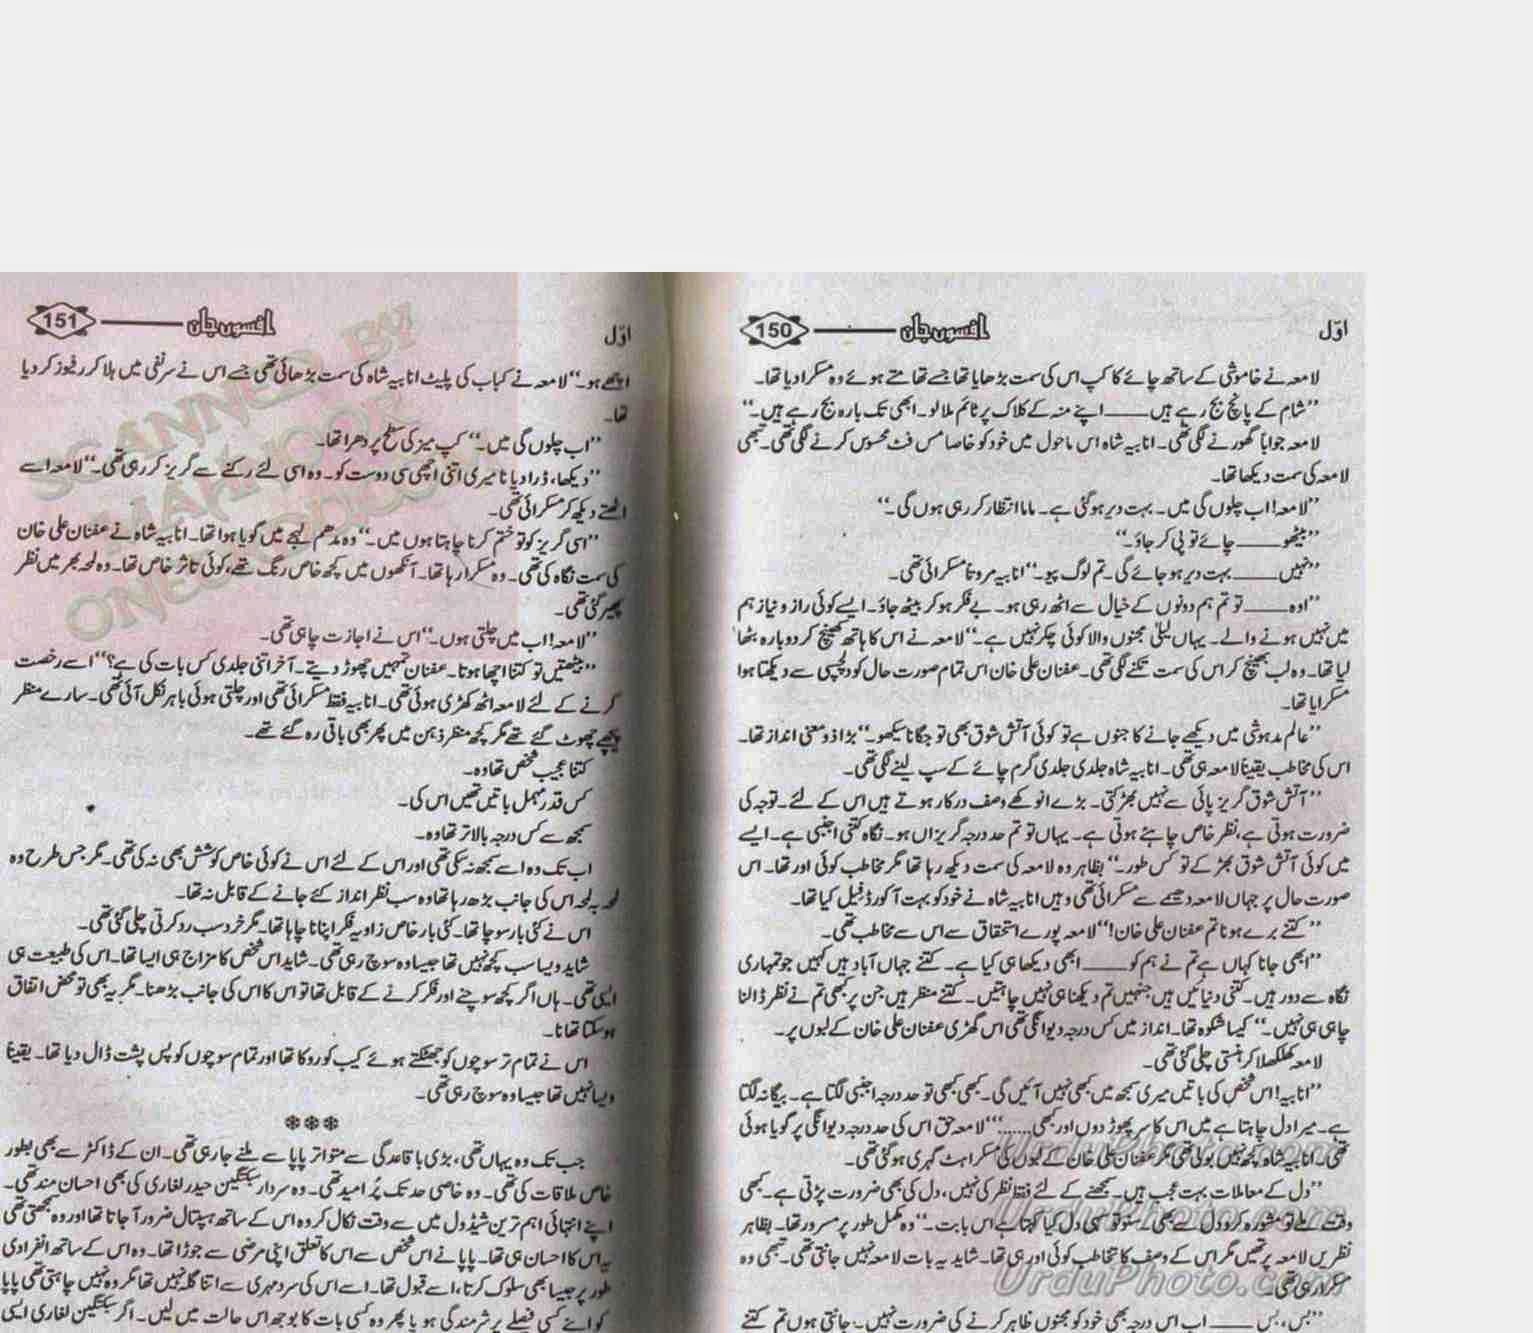 اوّل
افسوں جاں
150
لامعہ نے خاموشی کے ساتھ چائے کا کپ اس کی سمت بڑھایا تھا جسے تھامتے ہوئے وہ مسکرا دیا تھا۔
’’شام کے پانچ بج رہے ہیں ـــــــ اپنے منہ کے کلاک پر ٹائم ملا لو۔ ابھی تک بارہ بج رہے ہیں۔‘‘
لامعہ جواباً گھورنے لگی تھی۔ انابیہ شاہ اس ماحول میں خود کو خاصا مس فٹ محسوس کرنے لگی تھی۔ تبھی
لامعہ کی سمت دیکھا تھا۔
’’لامعہ! اب چلوں گی میں۔ بہت دیر ہو گئی ہے۔ ماما انتظار کر رہی ہوں گی۔‘‘
’’بیٹھو ـــــــ چائے تو پی کر جاؤ۔‘‘
’’نہیں ـــــــ بہت دیر ہو جائے گی۔ تم لوگ پیو۔‘‘ انابیہ مروتاً مسکرائی تھی۔
’’اوہ ـــــــ تو تم ہم دونوں کے خیال سے اٹھ رہی ہو۔ بے فکر ہو کر بیٹھ جاؤ۔ ایسے کوئی راز و نیاز ہم
میں نہیں ہونے والے۔ یہاں لیلیٰ مجنوں والا کوئی چکر نہیں ہے۔‘‘ لامعہ نے اس کا ہاتھ کھینچ کر دوبارہ بٹھا
لیا تھا۔ وہ لب بھینچ کر اس کی سمت تکنے لگی تھی۔ عفنان علی خان اس تمام صورت حال کو دلچسپی سے دیکھتا ہوا
مسکرایا تھا۔
’’عالم مدہوشی میں دیکھے جانے کا جنوں ہے تو کوئی آتش شوق بھی تو جگانا سیکھو۔‘‘ بڑا ذومعنی انداز تھا۔
اس کی مخاطب یقیناً لامعہ ہی تھی۔ انابیہ شاہ جلدی جلدی گرم چائے کے سپ لینے لگی تھی۔
’’آتش شوق گریز پائی سے نہیں بھڑکتی۔ بڑے انوکھے وصف درکار ہوتے ہیں اس کے لئے۔ توجہ کی
ضرورت ہوتی ہے، نظر خاص چاہئے ہوتی ہے۔ یہاں تو تم حد درجہ گریزاں ہو۔ نگاہ کتنی اجنبی ہے۔ ایسے
میں کوئی آتش شوق بھڑکے تو کس طور۔‘‘ بظاہر وہ لامعہ کی سمت دیکھ رہا تھا مگر مخاطب کوئی اور تھا۔ اس
صورت حال پر جہاں لامعہ دھیمے سے مسکرائی تھی وہیں انابیہ شاہ نے خود کو بہت آکورڈ فیل کیا تھا۔
’’کتنے برے ہو نا تم عفنان علی خان!‘‘ لامعہ پورے استحقاق سے اس سے مخاطب تھی۔
’’ابھی جانا کہاں ہے تم نے ہم کو ـــــــ ابھی دیکھا ہی کیا ہے۔ کتنے جہاں آباد ہیں کہیں جو تمہاری
نگاہ سے دور ہیں۔ کتنی دنیائیں ہیں جنہیں تم دیکھنا ہی نہیں چاہتیں۔ کتنے منظر ہیں جن پر کبھی تم نے نظر ڈالنا
چاہی ہی نہیں۔‘‘ کیسا شکوہ تھا۔ انداز میں کس درجہ دیوانگی تھی اس گھڑی عفنان علی خان کے لبوں پر۔
لامعہ کھلکھلا کر ہنستی چلی گئی تھی۔
’’انابیہ! اس شخص کی باتیں میری سمجھ میں کبھی نہیں آئیں گی۔ کبھی کبھی تو حد درجہ اجنبی لگتا ہے۔ بیگانہ لگتا
ہے۔ میرا دل چاہتا ہے میں اس کا سر پھوڑ دوں اور کبھی......‘‘ لامعہ حق اس کی حد درجہ دیوانگی پر گویا ہوئی
تھی۔ انابیہ شاہ کچھ نہیں بولی تھی مگر عفنان علی خان کے لبوں کی مسکراہٹ گہری ہو گئی تھی۔
’’دل کے معاملات بہت عجب ہیں۔ سمجھنے کے لئے فقط نظر کی نہیں، دل کی بھی ضرورت پڑتی ہے۔ کبھی
وقت ملے تو مشورہ کرو دل سے بھی۔ سنو تو سہی دل کیا کہتا ہے اس بابت۔‘‘ وہ مکمل طور پر مسرور تھا۔ بظاہر
نظریں لامعہ پر تھیں مگر اس کے وصف کا تخاطب کوئی اور ہی تھا۔ شاید یہ بات لامعہ نہیں جانتی تھی۔ تبھی وہ
مسکرا رہی تھی۔
’’بس، بس ـــــــ اب اس درجہ بھی خود کو مجنوں ظاہر کرنے کی ضرورت نہیں۔ جانتی ہوں تم کتنے
UrduPhoto.com
UrduPhoto.com
UrduPhoto.com
اوّل
افسوں جاں
151
اچھے ہو۔‘‘ لامعہ نے کباب کی پلیٹ انابیہ شاہ کی سمت بڑھائی تھی جسے اس نے سر نفی میں ہلا کر رفیوز کر دیا
تھا۔
’’اب چلوں گی میں۔‘‘ کپ میز کی سطح پر دھرا تھا۔
’’دیکھا، ڈرا دیا نا میری اتنی اچھی سی دوست کو۔ وہ اسی لئے رکنے سے گریز کر رہی تھی۔‘‘ لامعہ اسے
اٹھتے دیکھ کر مسکرائی تھی۔
’’اسی گریز کو تو ختم کرنا چاہتا ہوں میں۔‘‘ وہ مدھم لہجے میں گویا ہوا تھا۔ انابیہ شاہ نے عفنان علی خان
کی سمت نگاہ کی تھی۔ وہ مسکرا رہا تھا۔ آنکھوں میں کچھ خاص رنگ تھے، کوئی تاثر خاص تھا۔ وہ لمحہ بھر میں نظر
پھیر گئی تھی۔
’’لامعہ! اب میں چلتی ہوں۔‘‘ اس نے اجازت چاہی تھی۔
’’بیٹھتیں تو کتنا اچھا ہوتا۔ عفنان تمہیں چھوڑ دیتے۔ آخر اتنی جلدی کس بات کی ہے؟‘‘ اسے رخصت
کرنے کے لئے لامعہ اٹھ کھڑی ہوئی تھی۔ انابیہ فقط مسکرائی تھی اور چلتی ہوئی باہر نکل آئی تھی۔ سارے منظر
پیچھے چھوٹ گئے تھے مگر کچھ منظر ذہن میں پھر بھی باقی رہ گئے تھے۔
کتنا عجیب شخص تھا وہ۔
کس قدر مہمل باتیں تھیں اس کی۔
سمجھ سے کس درجہ بالاتر تھا وہ۔
اب تک وہ اسے سمجھ نہ سکی تھی اور اس کے لئے اس نے کوئی خاص کوشش بھی نہ کی تھی۔ مگر جس طرح وہ
لمحہ بہ لمحہ اس کی جانب بڑھ رہا تھا وہ سب نظر انداز کئے جانے کے قابل نہ تھا۔
اس نے کئی بار سوچا تھا۔ کئی بار خاص زاویہ فکر اپنانا چاہا تھا۔ مگر خرد سب رد کرتی چلی گئی تھی۔
شاید ویسا سب کچھ نہیں تھا جیسا وہ سوچ رہی تھی۔ شاید اس شخص کا مزاج ہی ایسا تھا۔ اس کی طبیعت ہی
ایسی تھی۔ ہاں اگر کچھ سوچنے اور فکر کرنے کے قابل تھا تو اس کا اس کی جانب بڑھنا۔ مگر یہ بھی تو محض اتفاق
ہو سکتا تھا نا۔
اس نے تمام تر سوچوں کو جھٹکتے ہوئے کیب کو روکا تھا اور تمام سوچوں کو پس پشت ڈال دیا تھا۔ یقیناً
ویسا نہیں تھا جیسا وہ سوچ رہی تھی۔
***
جب تک وہ یہاں تھی، بڑی باقاعدگی سے متواتر پاپا سے ملنے جا رہی تھی۔ ان کے ڈاکٹر سے بھی بطور
خاص ملاقات کی تھی۔ وہ خاصی حد تک پُرامید تھی۔ وہ سردار سبکتگین حیدر لغاری کی بھی احسان مند تھی۔
اپنے انتہائی اہم ترین شیڈول میں سے وقت نکال کر وہ اس کے ساتھ ہسپتال ضرور آ جاتا تھا اور وہ سمجھتی تھی
یہ اس کا احسان ہی تھا۔ پاپا نے اس شخص سے اس کا تعلق اپنی مرضی سے جوڑا تھا۔ وہ اس کے ساتھ انفرادی
طور پر جیسا بھی سلوک کرتا، اسے قبول تھا۔ اسے اس کی سرد مہری سے اتنا گلہ نہیں تھا مگر وہ نہیں چاہتی تھی پاپا
کو اپنے کسی فیصلے پر شرمندگی ہو یا پھر وہ کسی بات کا بوجھ اس حالت میں لیں۔ اگر سبکتگین لغاری ایسی
SCANNED BY